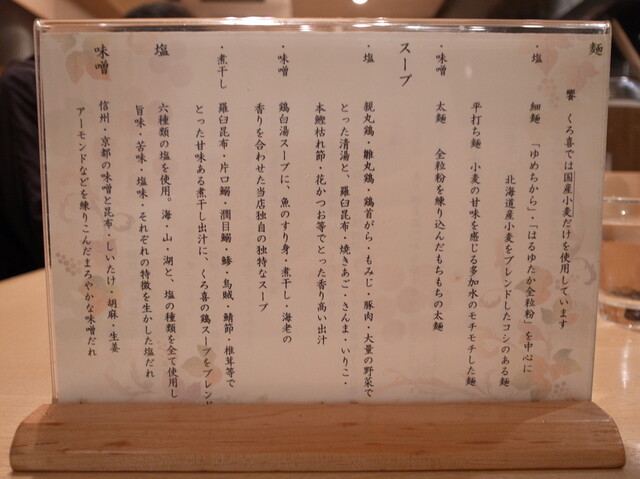 麺
饗 くろ喜では国産小麦だけを使用しています
・塩 細麺 「ゆめちから」・「はるゆたか全粒粉」を中心に
北海道産小麦をブレンドしたコシのある麺
平打ち麺 小麦の甘味を感じる多加水のモチモチした麺
・味噌 太麺 全粒粉を練り込んだもちもちの太麺
スープ
・塩 親丸鶏・雛丸鶏・鶏首がら・もみじ・豚肉・大量の野菜で
とった清湯と、羅臼昆布・焼きあご・さんま・いりこ・
本鰹枯れ節・花かつお等でとった香り高い出汁
・味噌 鶏白湯スープに、魚のすり身・煮干し・海老の
香りを合わせた当店独自の独特なスープ
・煮干し 羅臼昆布・片口鰯・潤目鰯・鯵・烏賊・鯖節・椎茸等で
とった甘味ある煮干し出汁に、くろ喜の鶏スープをブレンド
塩 六種類の塩を使用。海・山・湖と、塩の種類を全て使用し
旨味・苦味・塩味・それぞれの特徴を生かした塩だれ
味噌 信州・京都の味噌と昆布・しいたけ・胡麻・生姜
アーモンドなどを練りこんだまろやかな味噌だれ